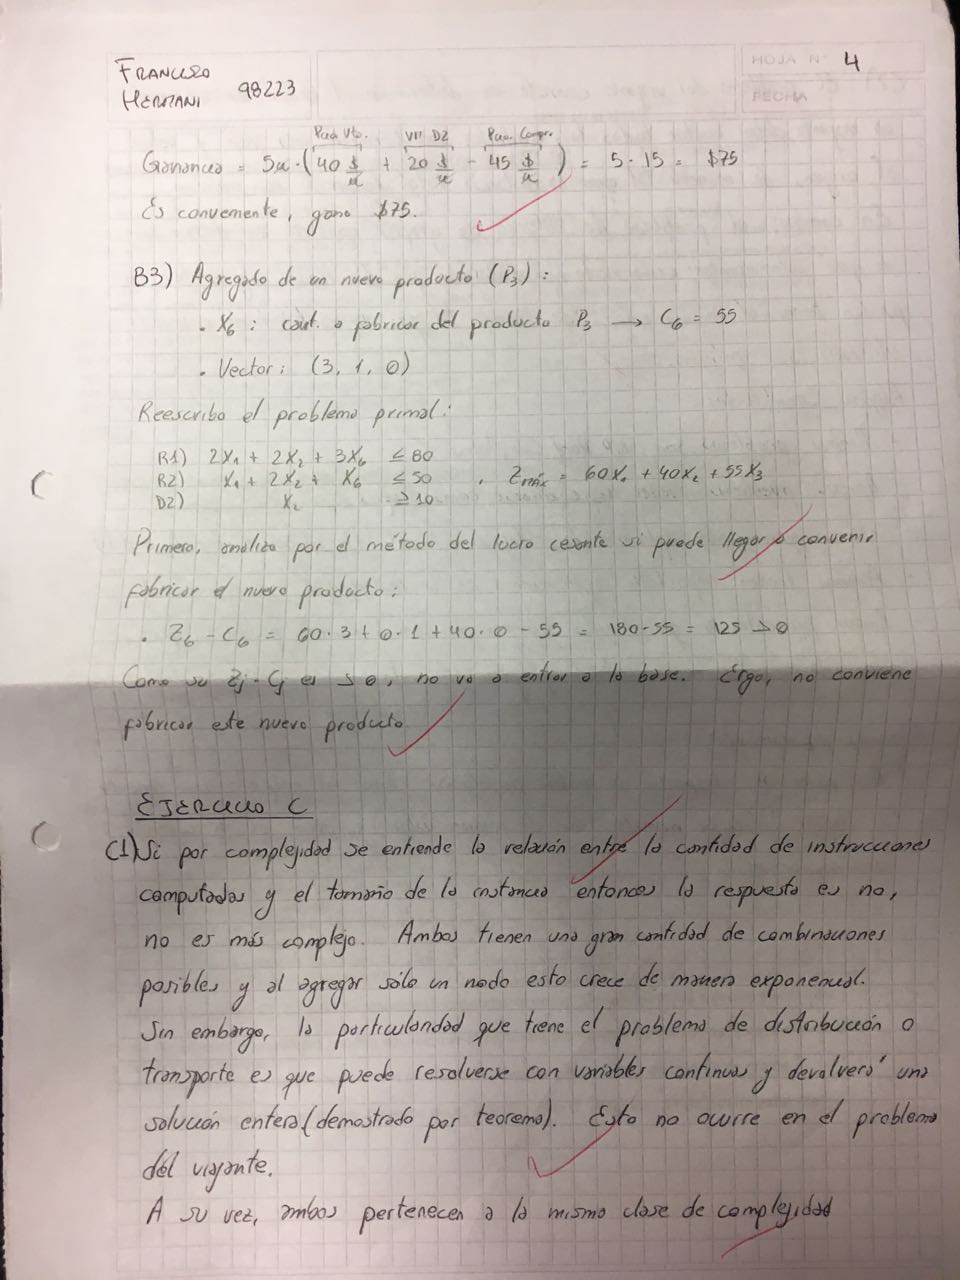 FRANCISCO
HERMANI 98223
HOJA N° 4
FECHA
Prec. Vto. VM D2 Prec. Compr.
Ganancia = 5u · (40 $/u + 20 $/u - 45 $/u) = 5 · 15 = $75
Es conveniente, gano $75.
B3) Agregado de un nuevo producto (P₃) :
· X₆ : cant. a fabricar del producto P₃ → C₆ = 55
· Vector: (3, 1, 0)
Reescribo el problema primal:
R1) 2X₁ + 2X₂ + 3X₆ ≤ 80
R2) X₁ + 2X₂ + X₆ ≤ 50 , Zmáx = 60X₁ + 40X₂ + 55X₃
D2) X₂ ≥ 10
Primero, analizo por el método del lucro cesante si puede llegar a convenir
fabricar el nuevo producto:
· Z₆ - C₆ = 60·3 + 0·1 + 40·0 - 55 = 180-55 = 125 > 0
Como su Zj - Cj es > 0, no va a entrar a la base. Ergo, no conviene
fabricar este nuevo producto
EJERCICIO C
C1) Si por complejidad se entiende la relación entre la cantidad de instrucciones
computadas y el tamaño de la instancia entonces la respuesta es no,
no es más complejo. Ambos tienen una gran cantidad de combinaciones
posibles y al agregar sólo un nodo esto crece de manera exponencial.
Sin embargo, la particularidad que tiene el problema de distribución o
transporte es que puede resolverse con variables continuas y devolverá una
solución entera (demostrado por teorema). Esto no ocurre en el problema
del viajante.
A su vez, ambos pertenecen a la misma clase de complejidad